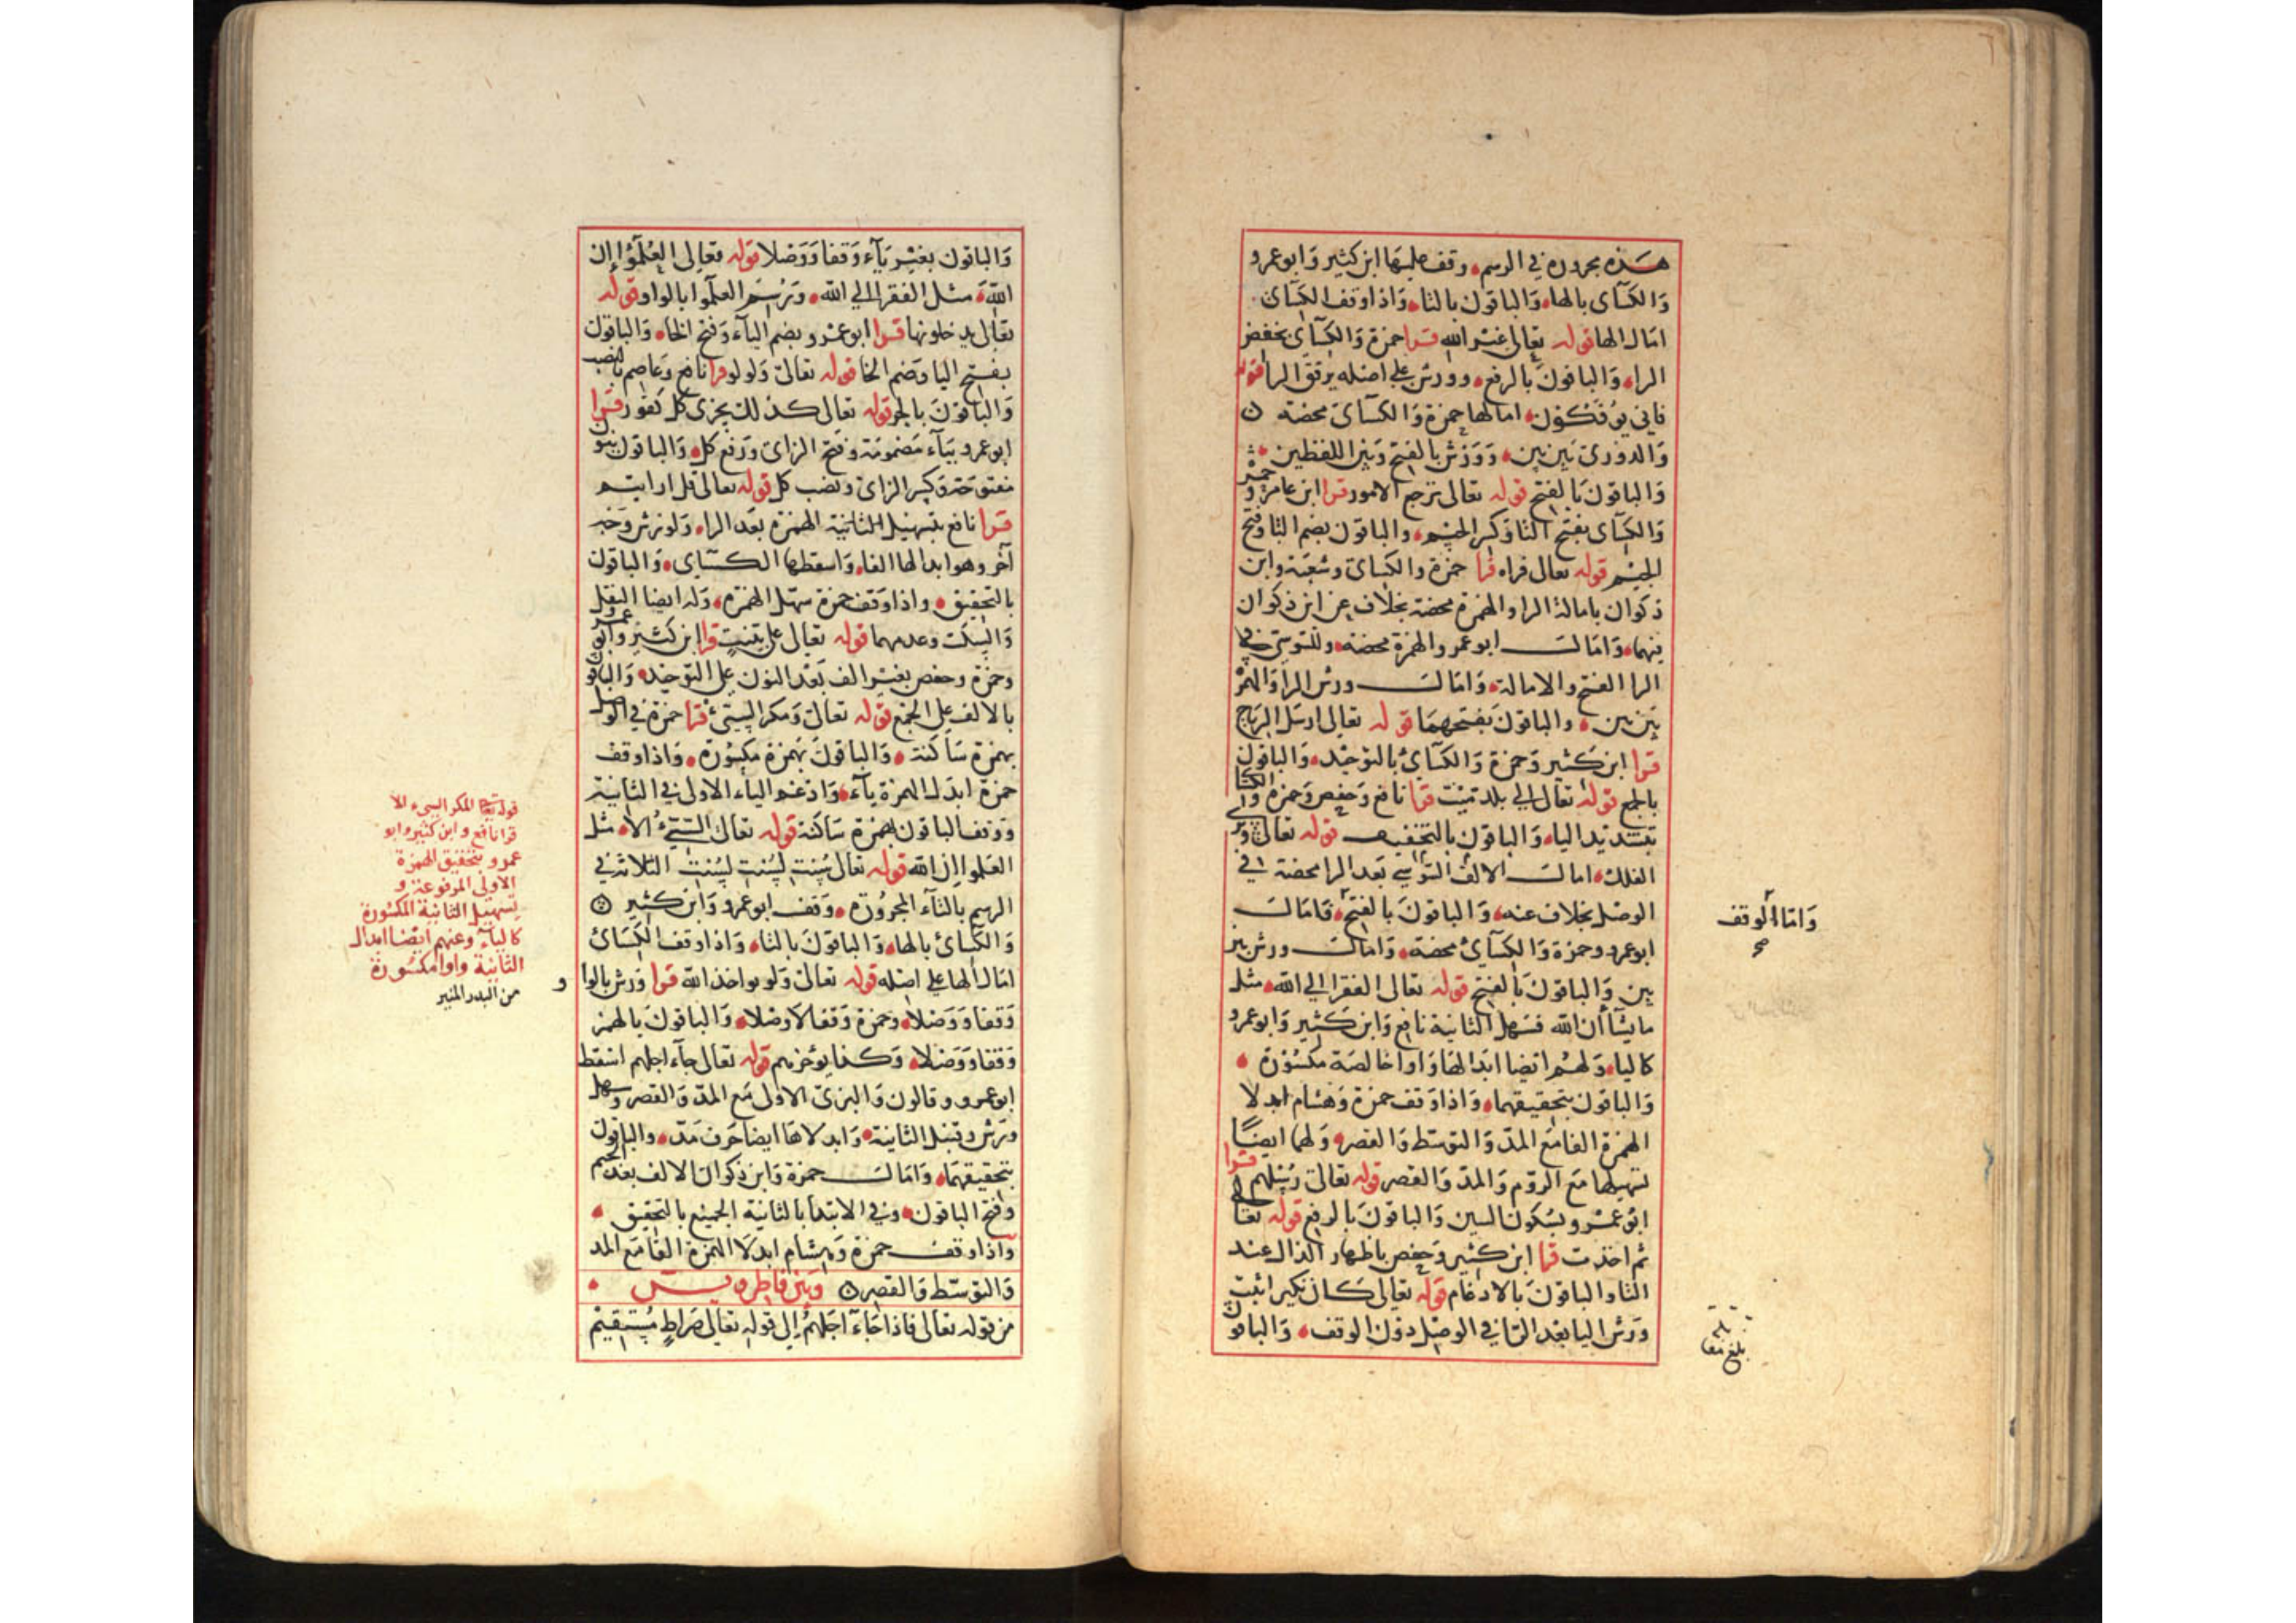 هذه مجرورة في الرسم وقف عليها ابن كثير وابو عمرو
والكسآى بالها والباقون بالتا واذا وقف الكسآى
امال الها قوله تعالى غير الله قرا حمزة والكسآى بخفض
الرا والباقون بالرفع وورش على اصله يرقق الرا قوله
فانى يوفكون امالها حمزة والكسآى محضة
والدورى بين بين وورش بالفتح وبين اللفظين
والباقون بالفتح قوله تعالى ترجع الامور قرا ابن عامر وحمزة
والكسآى بفتح التا وكسر الجيم والباقون بضم التا وفتح
الجيم قوله تعالى فراه قرا حمزة والكسآى وشعبة وابن
ذكوان بامالة الرا والهمزة محضة بخلاف عن ابن ذكوان
فيهما وامال ابو عمرو الهمزة محضة وللسوسي في
الرا الفتح والامالة وامال ورش الرا والهمز
بين بين والباقون بفتحهما قوله تعالى ارسل الرياح
قرا ابن كثير وحمزة والكسآئ بالتوحيد والباقون
بالجمع قوله تعالى الى بلد ميت قرا نافع وحفص وحمزة والكسا
بتشديد الياء والباقون بالتخفيف قوله تعالى وترى
الفلك امال الالف السوسي بعد الرا محضة في
الوصل بخلاف عنه والباقون بالفتح فامال
ابو عمرو وحمزة والكسآئ محضة وامال ورش بين
بين والباقون بالفتح قوله تعالى الفقرا الى الله مثل
ما يشآ ان الله فسهل الثانية نافع وابن كثير وابو عمرو
كاليا ولهم ايضا ابدالها واوا خالصة مكسورة
والباقون بتحقيقهما واذا وقف حمزة وهشام ابدلا
الهمزة الفا مع المد والتوسط والقصر ولهما ايضا
تسهيلها مع الروم والمد والقصر قوله تعالى رسلهم قرا
ابو عمرو بسكون السين والباقون بالرفع قوله تعالى
ثم اخذت قرا ابن كثير وحفص باظهار الذال عند
التا والباقون بالادغام قوله تعالى كان نكير اثبت
ورش اليا بعد الرا في الوصل دون الوقف والباقون
واما الوقف
صح
بلغ مقابلة
والباقون بغير يآء وقفا ووصلا قوله تعالى العلمؤا ان
الله مثل الفقرا الى الله وترسم العلموا بالواو قوله
تعالى يدخلونها قرا ابو عمرو بضم اليآء وفتح الخا والباقون
بفتح اليا وضم الخا قوله تعالى ولولو قرا نافع وعاصم بالنصب
والباقون بالجر قوله تعالى كذلك يجزى كل كفور قرا
ابو عمرو بيآء مضمومة وفتح الزاى ورفع كل والباقون بنون
مفتوحة وكسر الزاى ونصب كل قوله تعالى قل ارايتم
قرا نافع بتسهيل الثانية الهمزة بعد الرا ولورش وجه
آخر وهو ابدالها الفا واسقطها الكسآى والباقون
بالتحقيق واذا وقف حمزة سهل الهمزة وله ايضا النقل
والسكت وعدمهما قوله تعالى على بينت قرا ابن كثير وابو عمرو
وحمزة وحفص بغير الف بعد النون على التوحيد والباقون
بالالف على الجمع قوله تعالى ومكر السيئ قرا حمزة في الوصل
بهمزة ساكنة والباقون بهمزة مكسورة واذا وقف
حمزة ابدل الهمزة يآء وادغم الياء الاولى في الثانية
ووقف الباقون بهمزة ساكنة قوله تعالى السيئ الا مثل
العلموا ان الله قوله تعالى سنت لسنت لسنت الثلاثة في
الرسم بالتآء المجرورة وقف ابو عمرو وابن كثير
والكسآئ بالها والباقون بالتا واذا وقف الكسائ
امال الها على اصله قوله تعالى ولو يواخذ الله قرا ورش بالواو
وقفا ووصلا وحمزة وقفا لا وصلا والباقون بالهمز
وقفا ووصلا وكذا يؤخرهم قوله تعالى جآء اجلهم اسقط
ابو عمرو وقالون والبزى الاولى مع المد والقصر وسهل
ورش وقنبل الثانية وابدلاها ايضا حرف مد والباقون
بتحقيقهما وامال حمزة وابن ذكوان الالف بعد الجيم
وفتح الباقون وفي الابتدا بالثانية الجميع بالتحقيق
واذا وقف حمزة وهشام ابدلا الهمزة الفا مع المد
والتوسط والقصر وبين فاطر ويس
من قوله تعالى فاذا جآء اجلهم الى قوله تعالى صراط مستقيم
قوله تعالى المكر السيء الا
قرا نافع وابن كثير وابو
عمرو بتحقيق الهمزة
الاولى المرفوعة و
تسهيل الثانية المكسورة
كاليآء وعنهم ايضا ابدال
الثانية واوا مكسورة
من البدر المنير